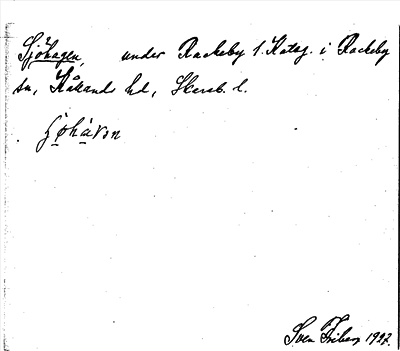 Sjöhagen, under Rackeby 1. Katag. i Rackeby
sn, Kålands hd, Skarab. l.
Sven Friberg 1927.